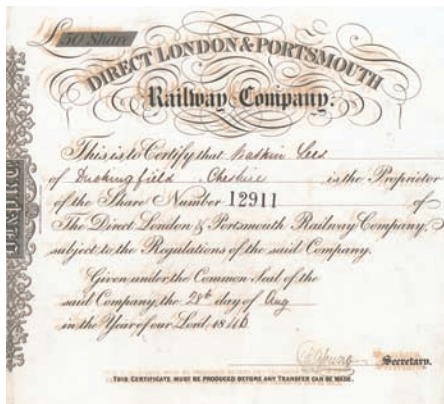 £50 Share
DIRECT LONDON & PORTSMOUTH
Railway Company.
This is to Certify that Lees
of Duckingfield Cheshire is the Proprietor
of the Share Number 12911 of
The Direct London & Portsmouth Railway Company,
subject to the Regulations of the said Company.
Given under the Common Seal of the
said Company, the 28th day of Aug
in the Year of our Lord 1846
Secretary.
THIS CERTIFICATE MUST BE PRODUCED BEFORE ANY TRANSFER CAN BE MADE.